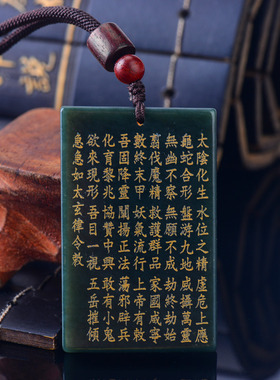 太陰化生 水位之精 虛危上應
龜蛇合形 盤游九地 威攝萬靈
無幽不察 無願不成 劫終劫始
翦伐魔精 救護群品 家國咸寧
數終末甲 妖氣流行 上帝有敕
吾固降靈 闡揚正法 蕩邪辟兵
化育黎兆 協贊中興 敢有小鬼
欲來現形 吾目一視 五岳摧傾
急急如太玄律令敕
說